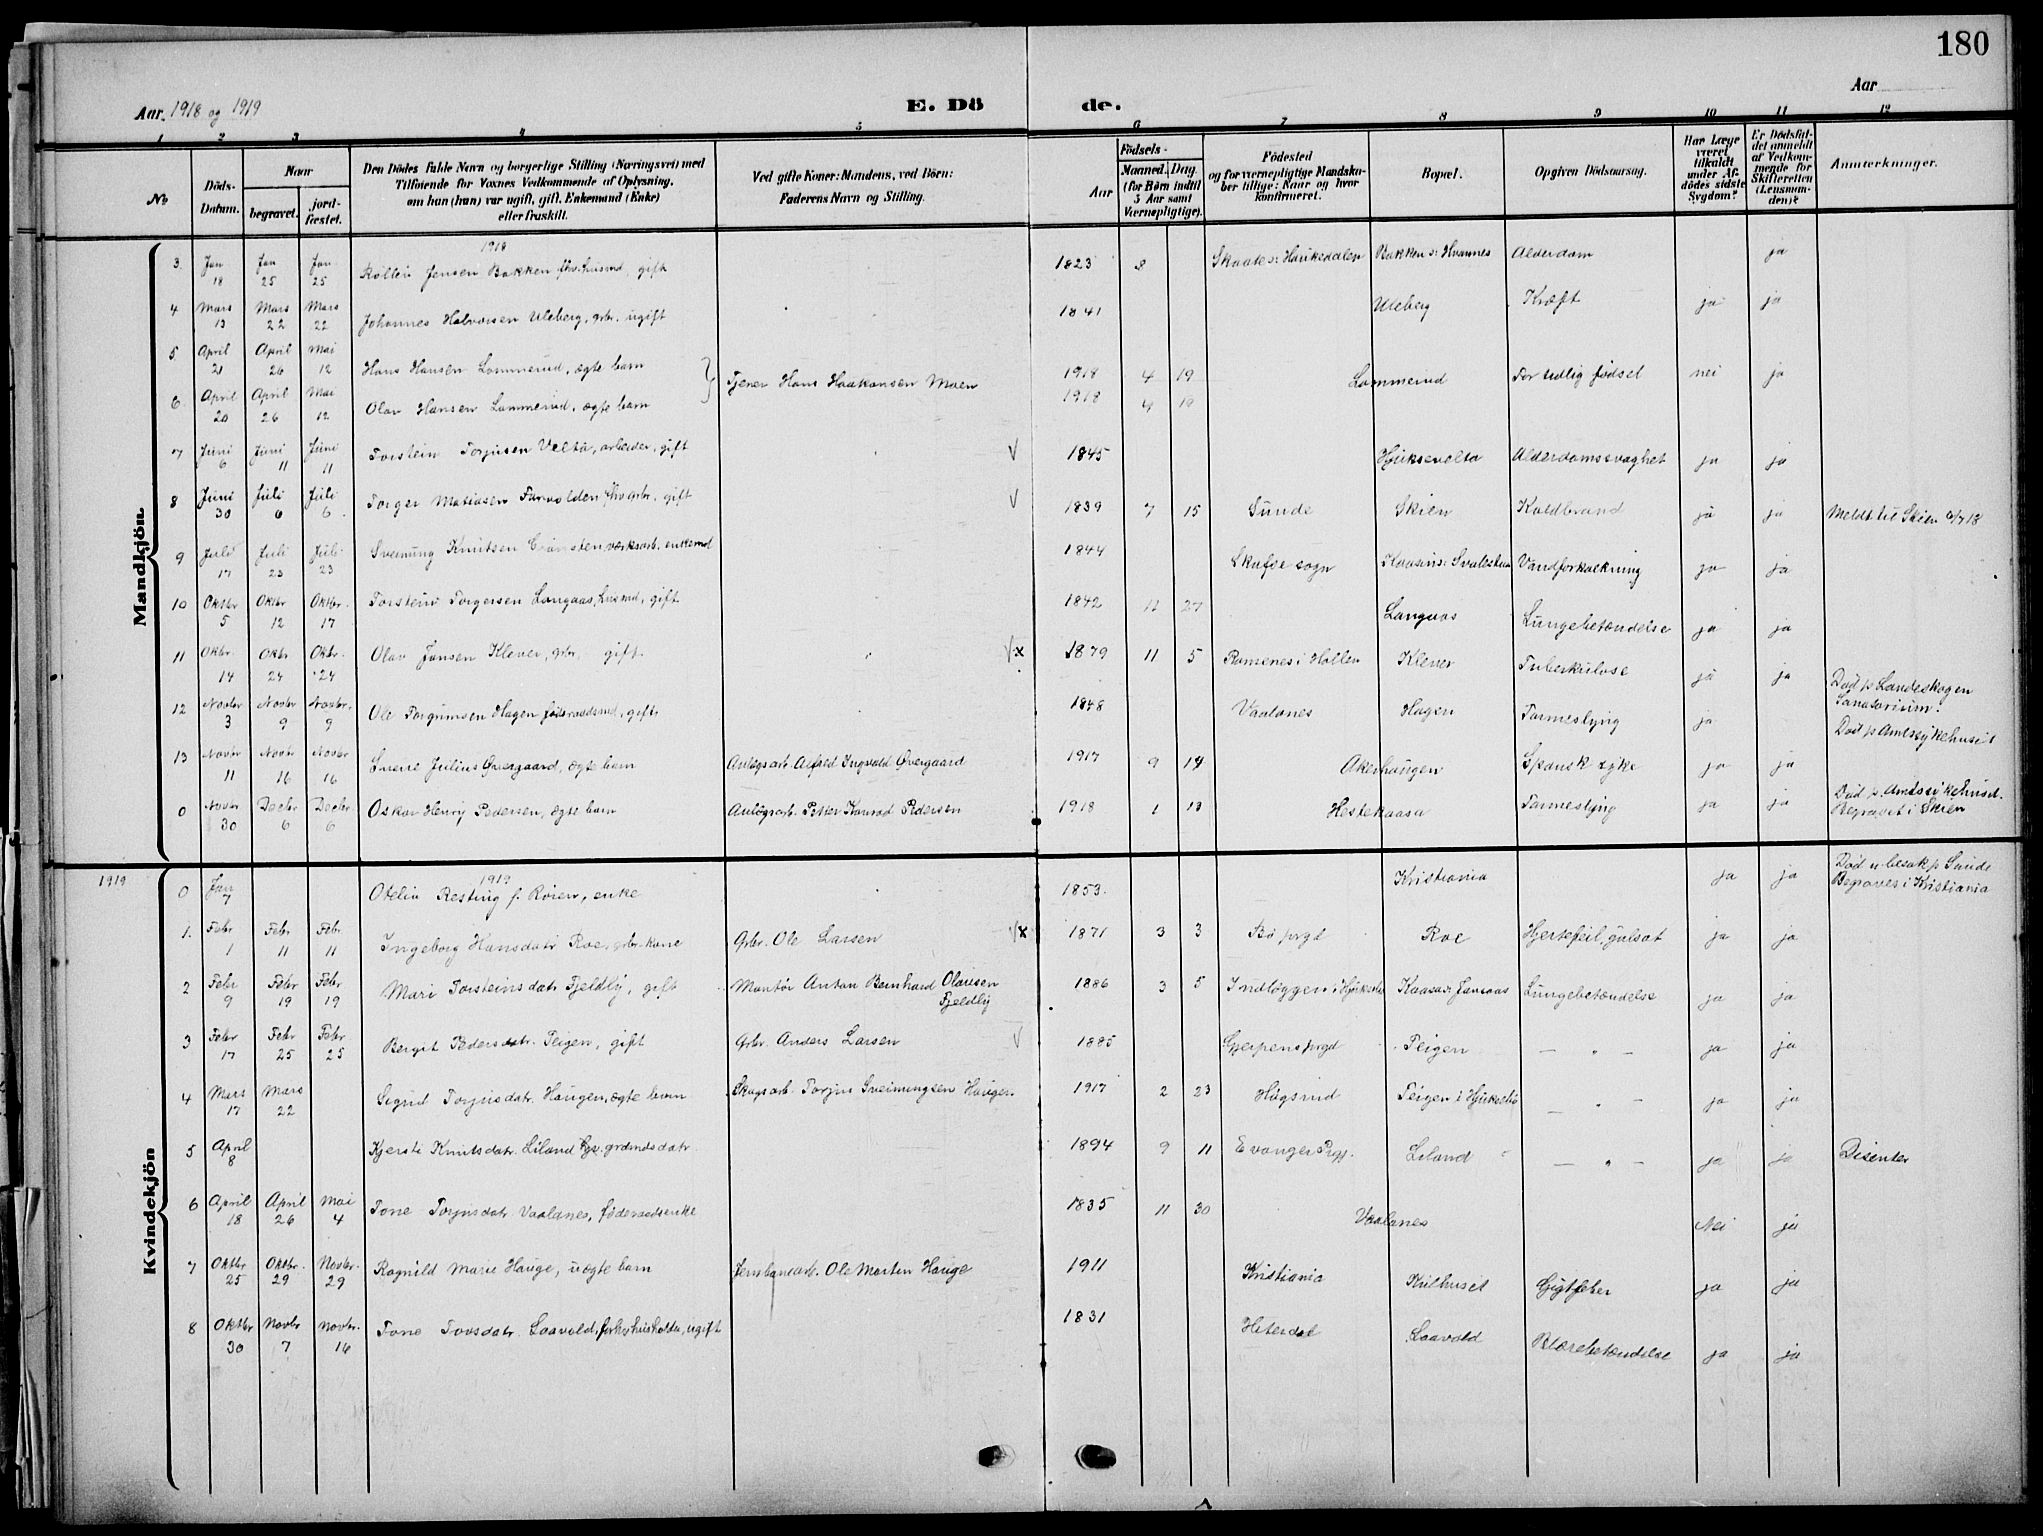 180
Aar 1918 og 1919
E. Dö de.
Aar
1 2 3 4 5 6 7 8 9 10 11 12
No
Döds-Datum.
Naar
begravet.
jord-fæstet.
Den Dödes fulde Navn og borgerlige Stilling (Næringsvei) med
Tilföiende for Voxnes Vedkommende af Oplysning,
om han (hun) var ugift, gift, Enkemand (Enke)
eller fraskilt.
Ved gifte Koner: Mandens, ved Börn:
Faderens Navn og Stilling.
Aar
Födsels-
Maaned. Dag.
(for Börn indtil
5 Aar samt
Værnepligtige).
Födested
og for værnepligtige Mandska-
ber tillige: Naar og hvor
konfirmeret.
Bopæl.
Opgiven Dödsaarsag.
Har Læge
været
tilkaldt
under Af-
dödes sidste
Sygdom?
Er Dödsfal-
det anmeldt
af Vedkom-
mende for
Skifteretten
(Lensman-
den)?
Anmerkninger.
Mandkjön
1918
3 Jan 18 Jan 25 Jan 25 Jensen Bakken fhv. husmd, gift 1823 8 Bakken s: Hvannes Alderdom ja
4 Mars 13 Mars 22 Mars 22 Johannes Halvorsen Uleberg, grbr. ugift 1841 Uleberg Kræft ja ja
5 April 21 April 26 Mai 12 Hans Hansen Lommerud, ægte barn Tjener Hans Haakonsen Moen 1918 4 19 Lommerud For tidlig födsel nei ja
6 April 20 April 26 Mai 12 Olav Hansen Lommerud, ægte barn 1918 4 19
7 Juni 6 Juni 11 Juni 11 Torstein Torjusen Velta, arbeider, gift 1845 Hjuksevelta Alderdomssvaghet ja ja
8 Juni 30 Juli 6 Juli 6 Torger Matiasen fhv grbr. gift 1839 7 15 Sunde Skien Koldbrand ja ja Meldt til Skien
9 Juli 17 Juli 23 Juli 23 Sveinung Knutsen enkemd 1844 Skafse sogn Vandforkalkning ja ja
10 Oktbr 5 Oktbr 12 Oktbr 17 Torstein Torgersen Langaas, husmd, gift 1842 12 27 Langaas Lungebetændelse ja ja
11 Oktbr. 14 Oktbr 24 Oktbr. 24 Olav Jansen Klever, grbr, gift x 1879 11 5 Romenes i Hollen Klever Tuberkulose ja ja Död p Landeskogen
Sanatorium.
12 Novbr 3 Novbr 9 Novbr. 9 Ole Hagen föderaadsmd, gift 1848 Vaalanes Hagen Tarmeslyng ja Död p Amtssykehuset
13 Novbr 11 Novbr 16 Novbr 16 Sverre Julius Övergaard, ægte barn Anlægsarb. Alfred Ingvald Övergaard 1917 9 14 Akerhaugen Spansk syke ja ja
0 Novbr 30 Decbr 6 Decbr 6 Oskar Henry Pedersen, ægte barn Anlægsarb. Petter Konrad Pedersen 1918 1 13 Hestekaasa Tarmeslyng ja ja Död p. Amtssykehuset.
Begravet i Skien
Kvindekjön
1919 1919
0 Jan 7 Otelia Resting f. Roien, enke 1853. Kristiania ja ja Död u besøk p Sunde
Begraves i Kristiania
1. Febr 1 Febr 11 Febr 11 Ingeborg Hansdatr Roe, grbr-kone Grbr. Ole Larsen x 1871 3 3 Bö prgd Roe Hjertefeil, gulsot ja ja
2 Febr 9 Febr 19 Febr 19 Mari Torsteinsdatr Fjeldly, gift Montör Anton Bernhard Olausen
Fjeldly 1886 3 5 Lungebetændelse ja ja
3 Febr 17 Febr 25 Febr 25 Bergit Pedersdatr. Teigen, gift Grbr. Anders Larsen 1885 Gjerpens prgd Teigen — " — ja ja
4 Mars 17 Mars 22 Sigrid Torjusdatr. Haugen, ægte barn Skogsarb. Torjus Sveinungsen Haugen 1917 2 23 Högsrud Teigen i Hjuksebö — " — ja ja
5 April 8 Kjersti Knutsdatr. Liland 1894 9 11 Evanger Prgj. Liland — " — ja ja Disenter
6 April 18 April 26 Mai 4 Tone Torjusdatr Vaalanes, föderaadsenke 1835 11 30 Vaalanes Nei ja
7 Oktbr 25 Oktbr. 29 Novbr. 29 Ragnild Marie Hauge, uægte barn Jernbanearb. Ole Morten Hauge 1911 Kristiania Kulhuset Gigtfeber ja ja
8 Oktbr 30 Novbr 7 Novbr. 16 Tone Tovsdatr. Laavold, ugift 1831 Hiterdal Laavold Blærebetændelse ja ja